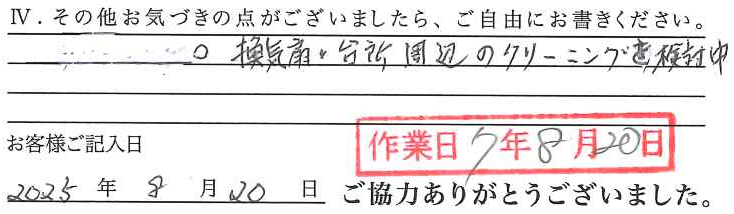 Ⅳ．その他お気づきの点がございましたら、ご自由にお書きください。
○ 換気扇・台所周辺のクリーニングを検討中
お客様ご記入日
作業日 7年8月20日
2025 年 8 月 20 日 ご協力ありがとうございました。